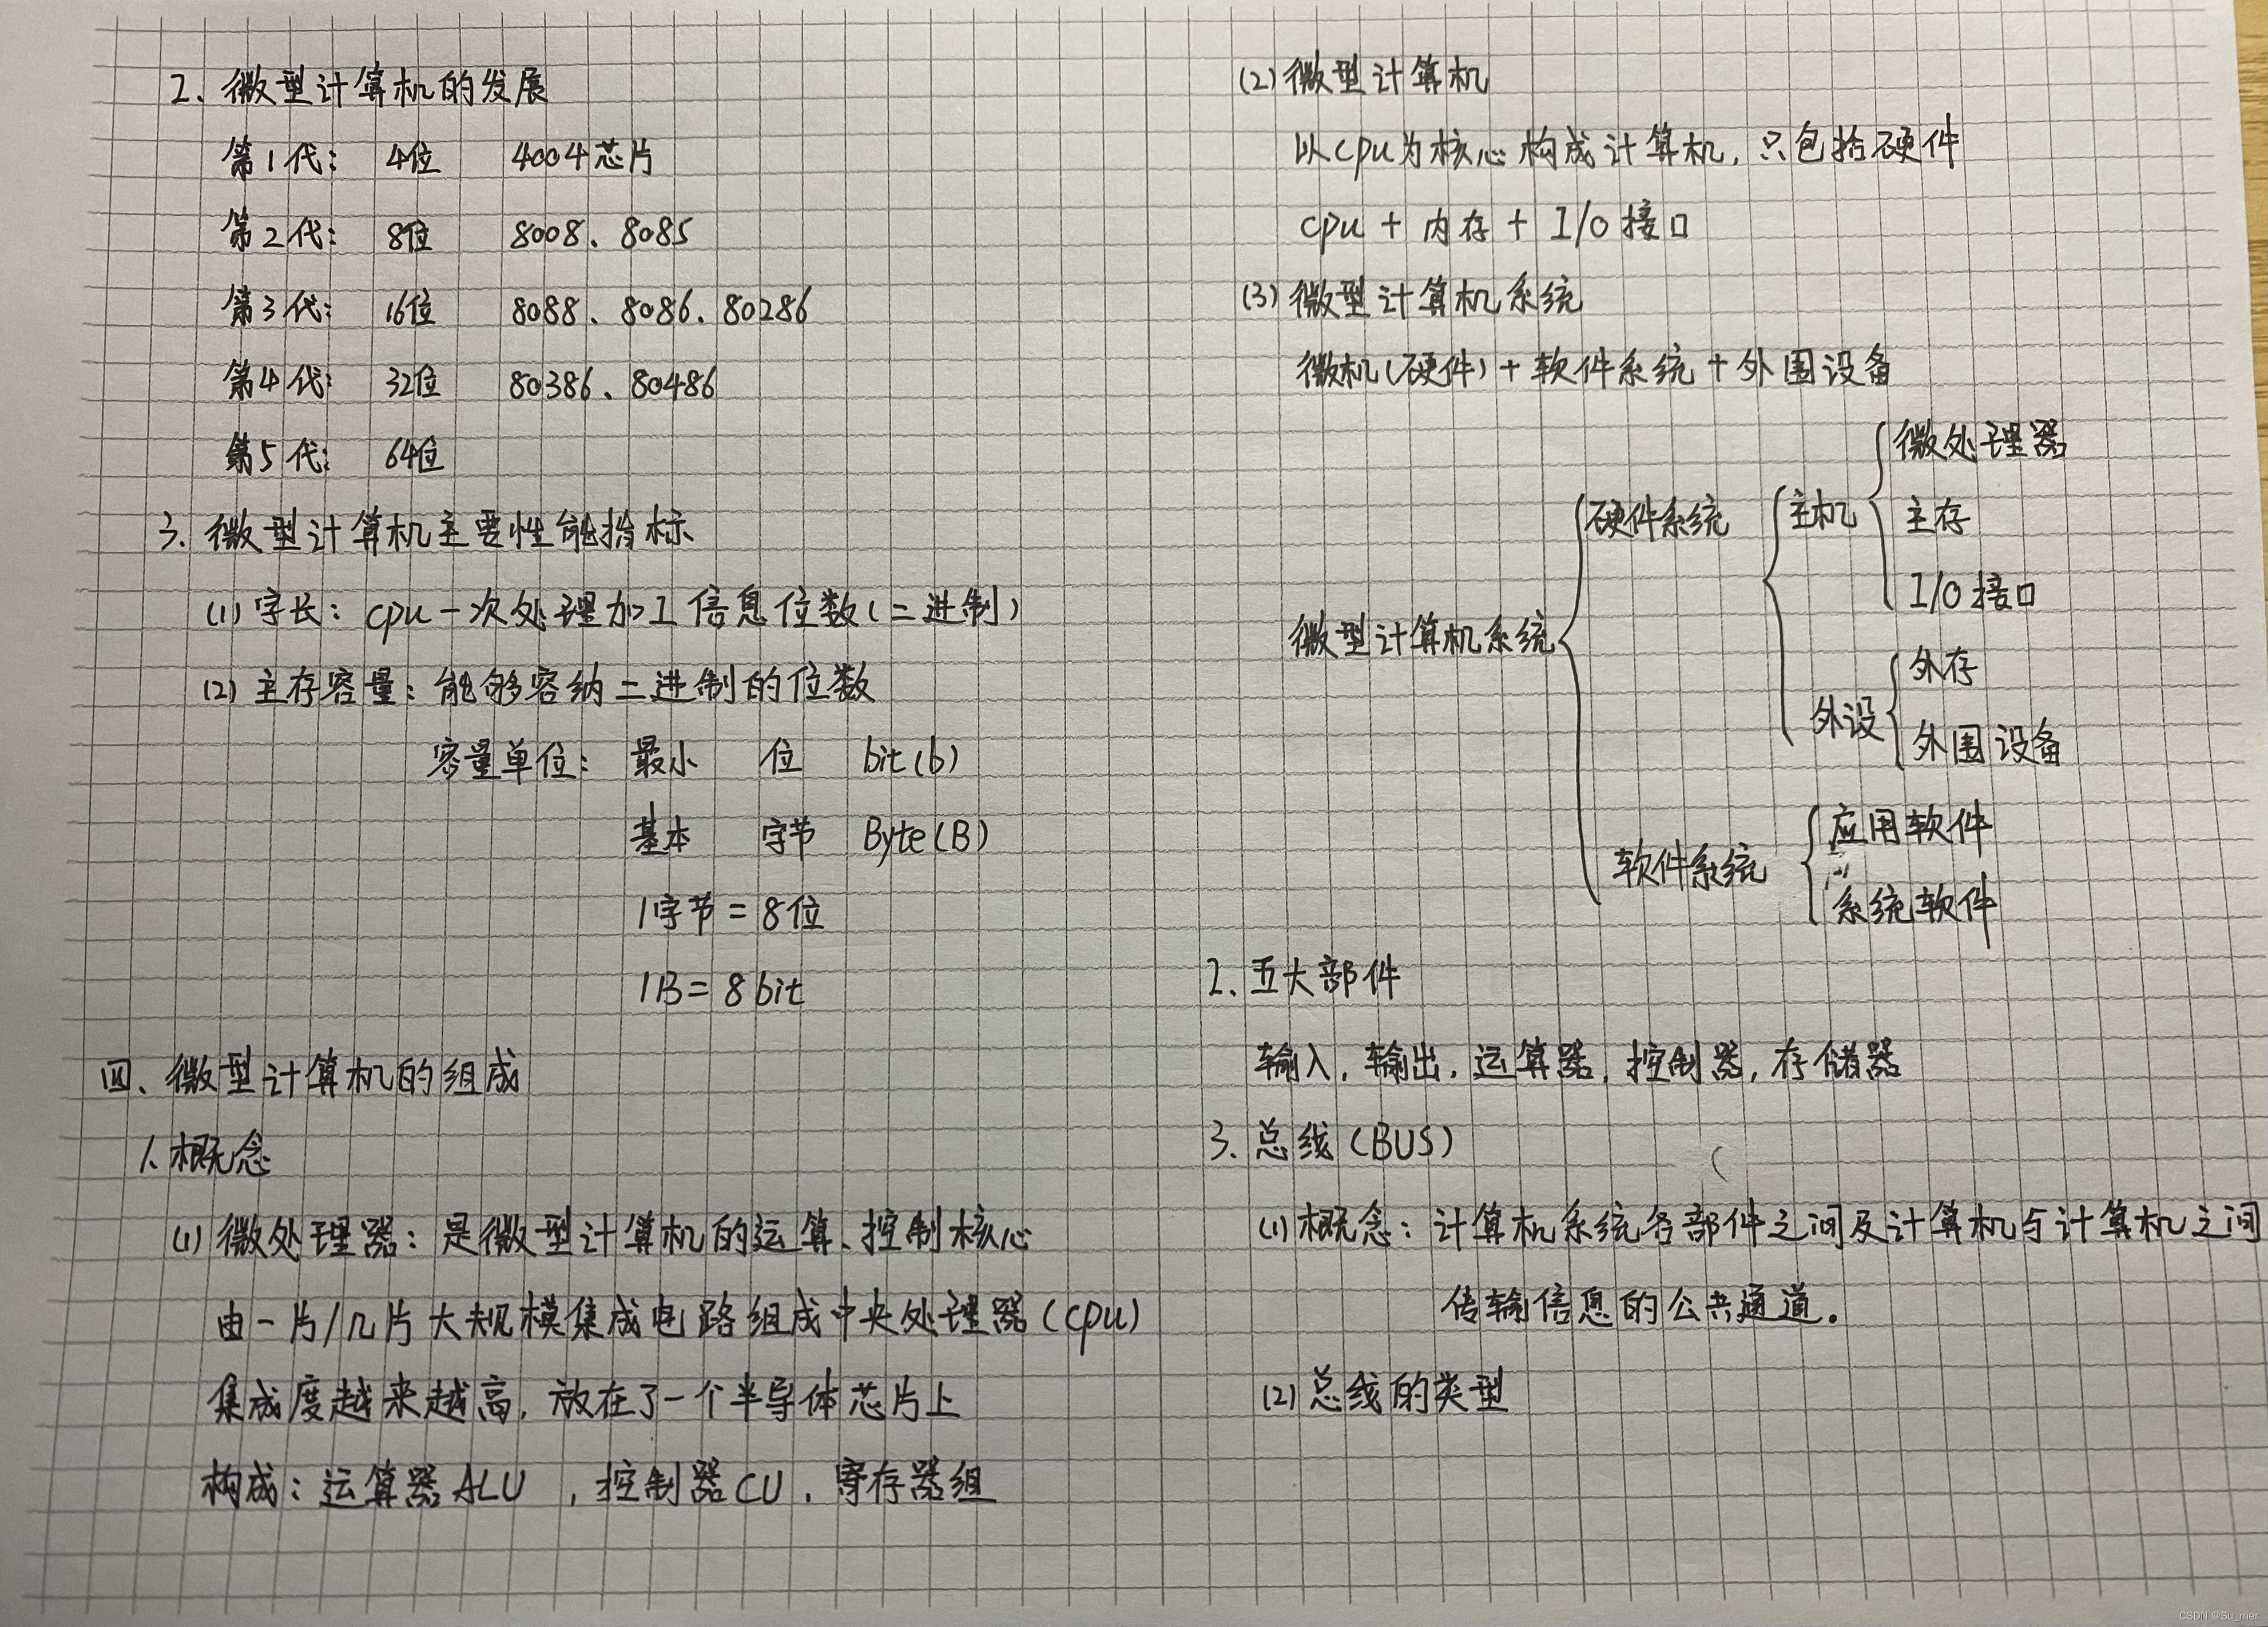 2、微型计算机的发展
第1代： 4位 4004芯片
第2代： 8位 8008、8085
第3代： 16位 8088、8086、80286
第4代： 32位 80386、80486
第5代： 64位
3、微型计算机主要性能指标
(1) 字长：cpu一次处理加工信息位数(二进制)
(2) 主存容量：能够容纳二进制的位数
容量单位： 最小 位 bit(b)
基本 字节 Byte(B)
1字节 = 8位
1B = 8bit
四、微型计算机的组成
1、概念
(1) 微处理器：是微型计算机的运算、控制核心
由一片/几片大规模集成电路组成中央处理器(cpu)
集成度越来越高，放在了一个半导体芯片上
构成：运算器ALU ，控制器CU，寄存器组
(2) 微型计算机
以cpu为核心构成计算机，只包括硬件
cpu + 内存 + I/O接口
(3) 微型计算机系统
微机(硬件) + 软件系统 + 外围设备
微型计算机系统
硬件系统
主机
微处理器
主存
I/O接口
外设
外存
外围设备
软件系统
应用软件
系统软件
2、五大部件
输入，输出，运算器，控制器，存储器
3、总线(BUS)
(1) 概念：计算机系统各部件之间及计算机与计算机之间
传输信息的公共通道。
(2) 总线的类型
CSDN @Su_mer